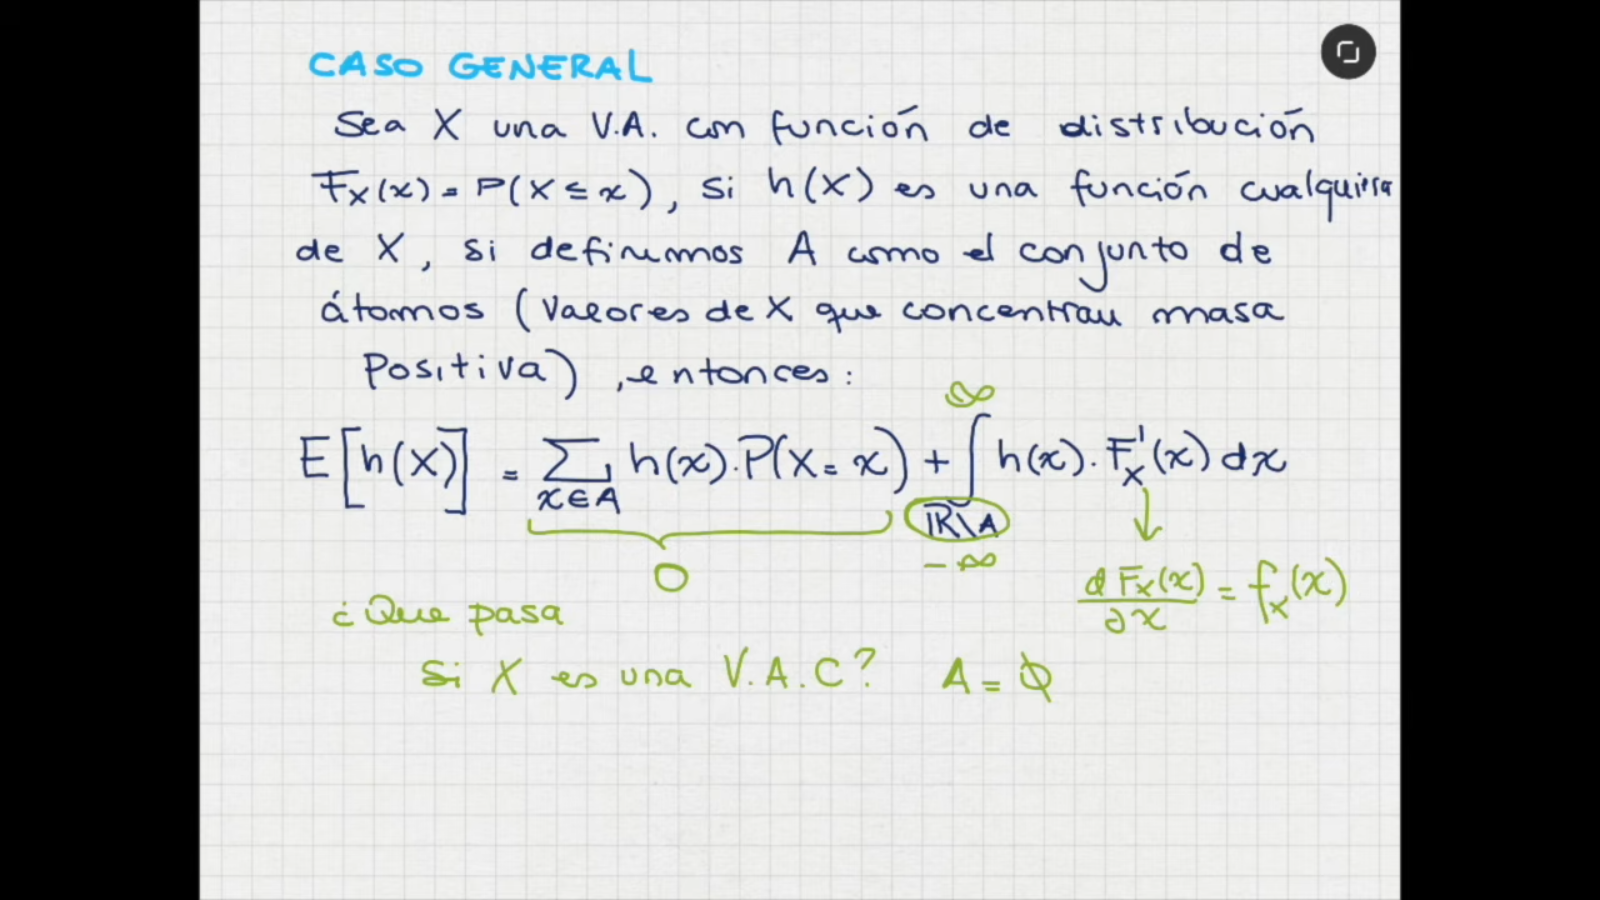 CASO GENERAL
Sea X una V.A. con función de distribución
F_X(x) = P(X ≤ x), si h(X) es una función cualquiera
de X, si definimos A como el conjunto de
átomos (valores de X que concentran masa
positiva), entonces:
E[h(X)] = ∑_{x∈A} h(x).P(X=x) + ∫_{ℝ\A} h(x).F'_X(x) dx
∞
-∞
0
dF_X(x)/dx = f_X(x)
¿Que pasa
si X es una V.A.C? A = Ø